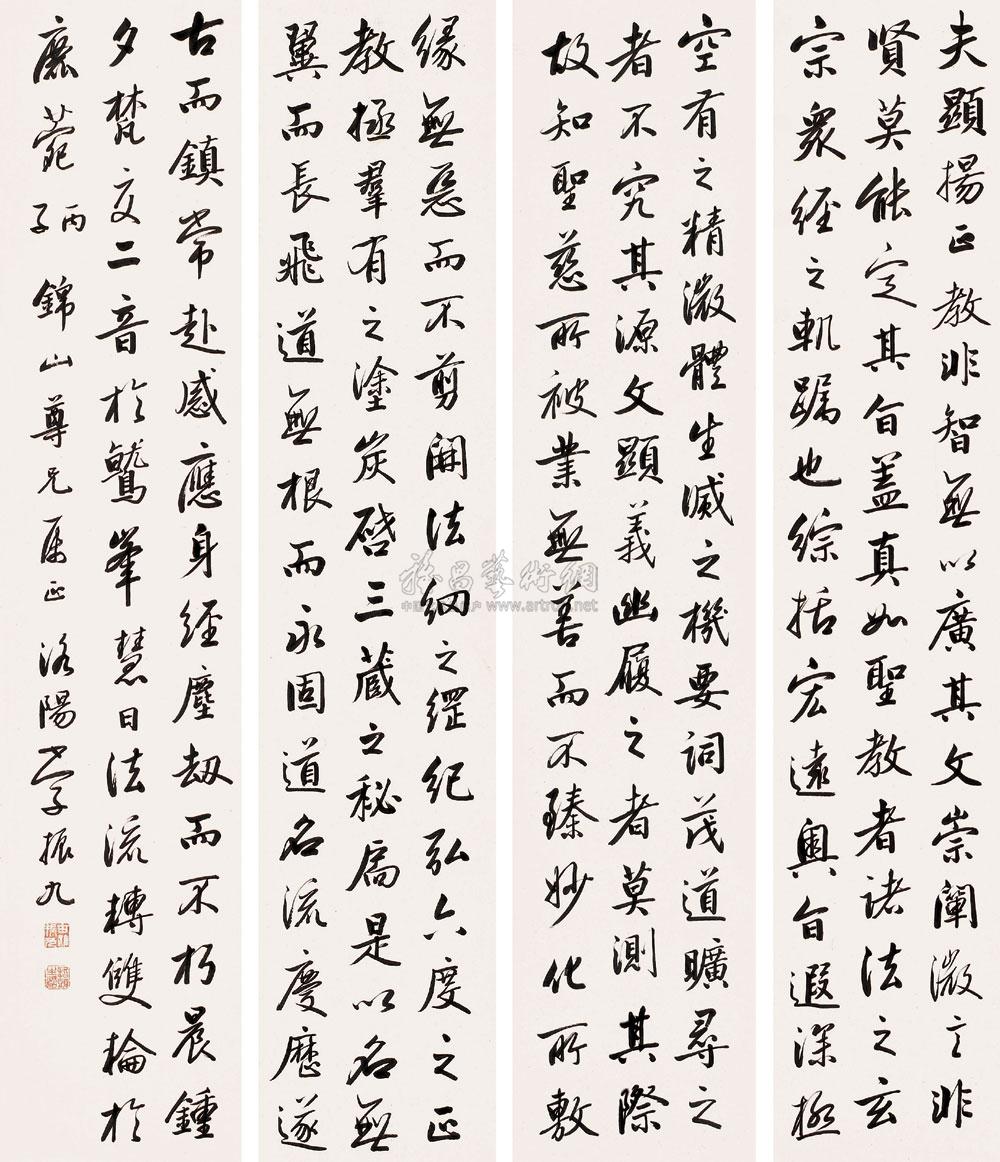 夫顯揚正教非智無以廣其文崇闡微言非
賢莫能定其旨蓋真如聖教者諸法之玄
宗衆經之軌躅也綜括宏遠奧旨遐深極
空有之精微體生滅之機要詞茂道曠尋之
者不究其源文顯義幽履之者莫測其際
故知聖慈所被業無善而不臻妙化所敷
緣無惡而不剪開法網之綱紀弘六度之正
教拯羣有之塗炭啓三藏之秘扃是以名無
翼而長飛道無根而永固道名流慶歷遂
古而鎮常赴感應身經塵劫而不朽晨鍾
夕梵交二音於鷲峯慧日法流轉雙輪於
鹿菀 丙子 錦山尊兄屬正 洛陽 振九
www.artron.net